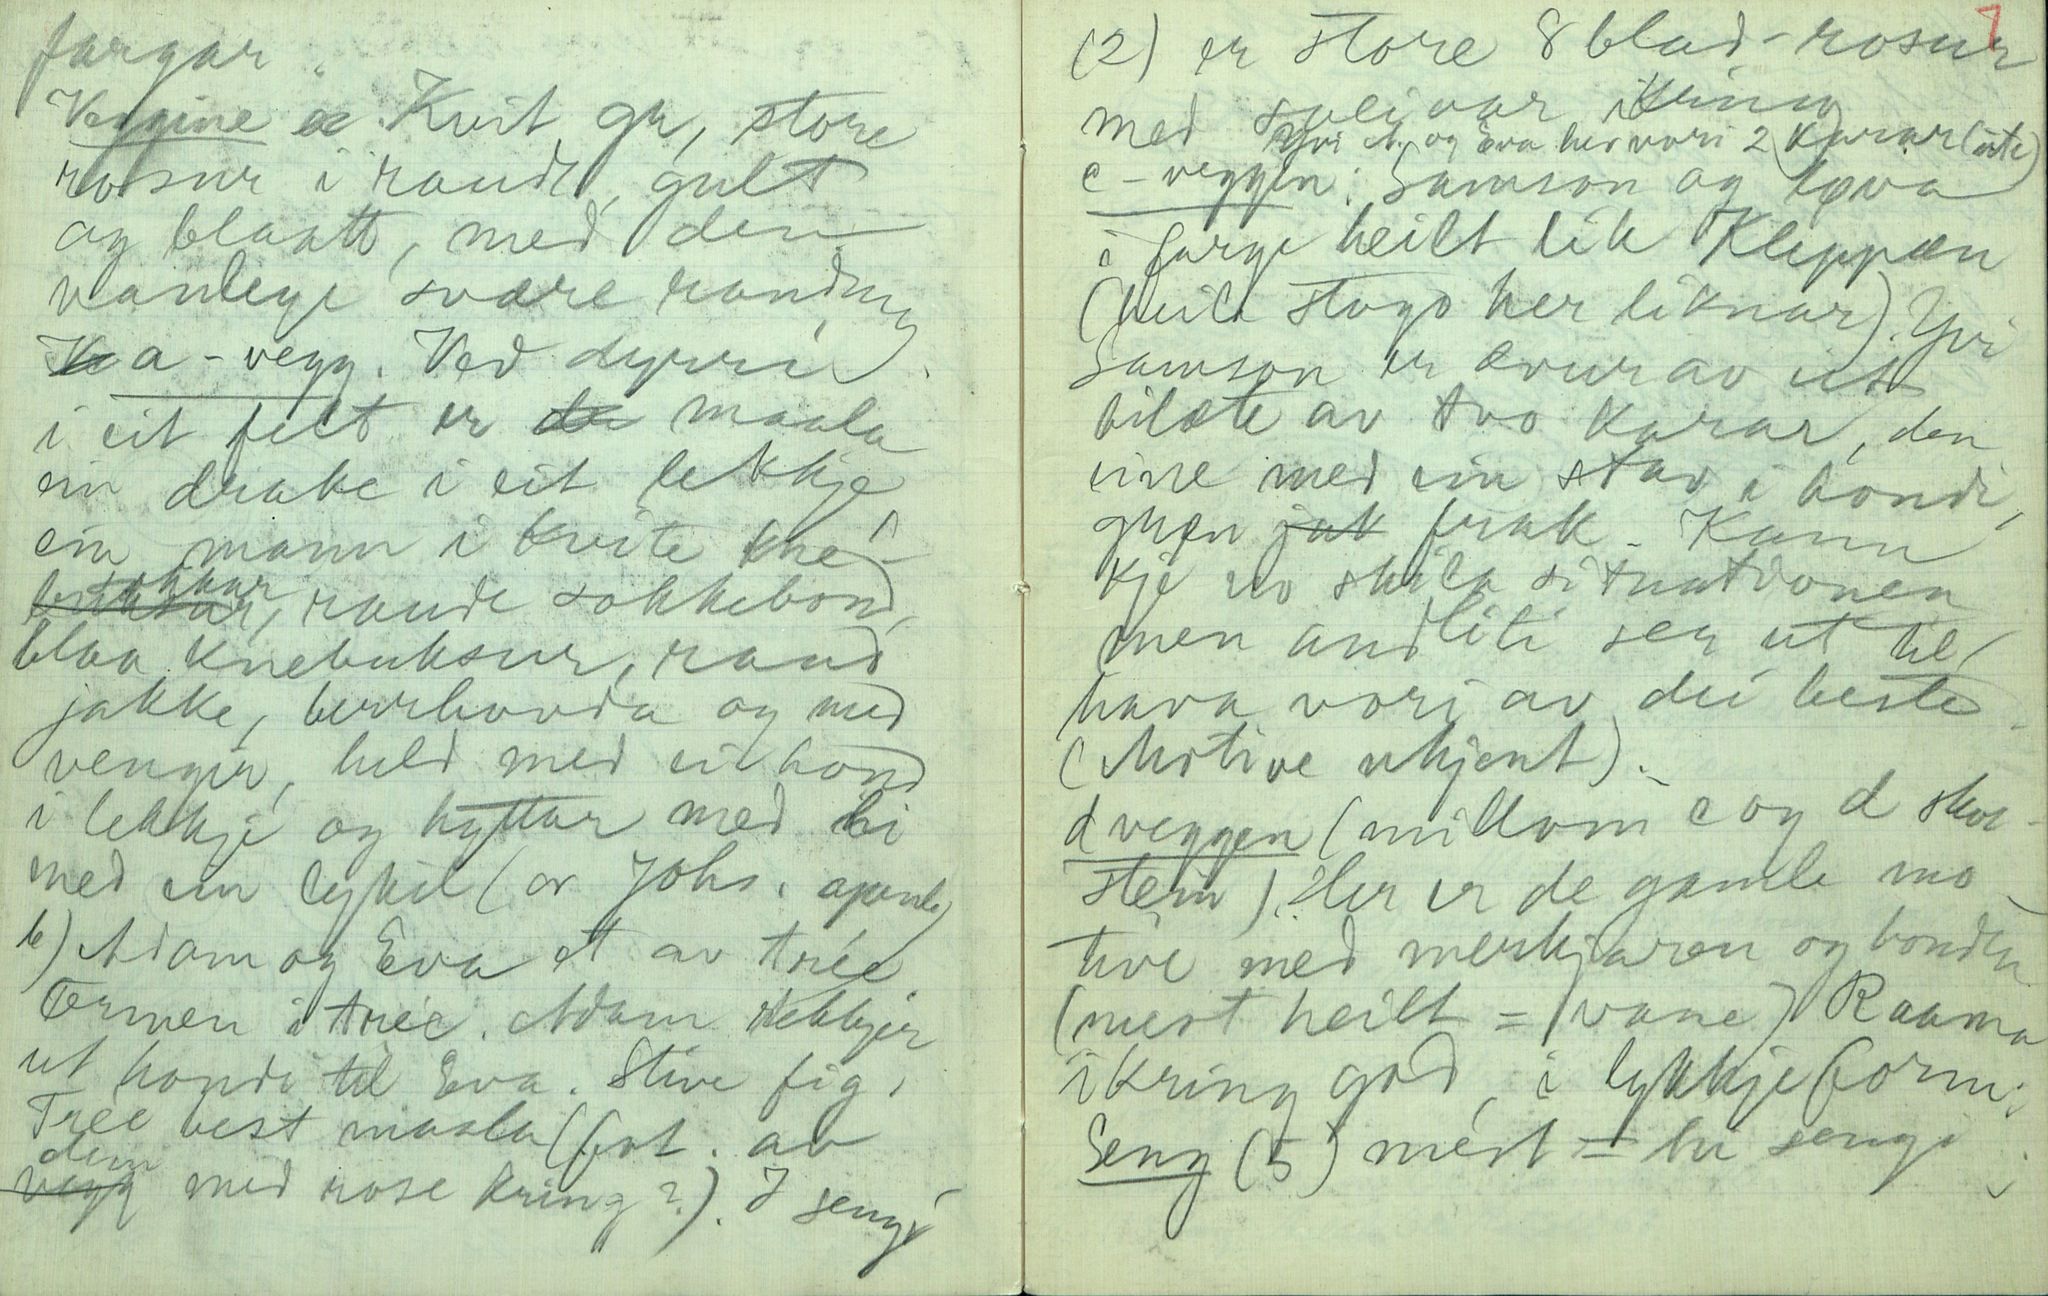 fargar.
Veggine er Kvit gr, store
rosur i raudt, gult
og blaatt, med den
vanlege svære randing
a-vegg. Ved dyrri
i eit felt er de maala
ein drake i eit lekkje
ein mann i kvite kne-
sokkar, raude sokkebond,
blaa knebuksur, raud
jakke, berrhovda og med
venger, held med ei hond
i lekkje og hyttar med hi
med ein lykil (av Johs. openb)
b) Adam og Eva et av tréé
Ormen i tréé. Adam rekkjer
ut hondi til Eva. Stive fig.
Tréé best maala (fot. av
dem
vegg med rose kring?). I sengi
7
(2) er store 8 blad-rosur
med ikring
Yvi A. og Eva hev vori 2 Karar (ute)
c-veggen: Samson og løva
i farge heilt lik Kleppæn
(heile stogo her liknar). Yvi
Samson er eit
bilæte av tvo Karar, den
eine med ein stav i hondi,
grøn jak frak. Kann
kje no skila situationen
men andliti ser ut til
hava vori av dei beste.
(Motive ukjent).
d veggen (millom c og d skor-
stein). Her er de gamle mo-
tive med merkjaren og bonden
(mest heilt = vane) Raama
ikring god, i lykkjeform;
Seng (5) mest = hi sengi